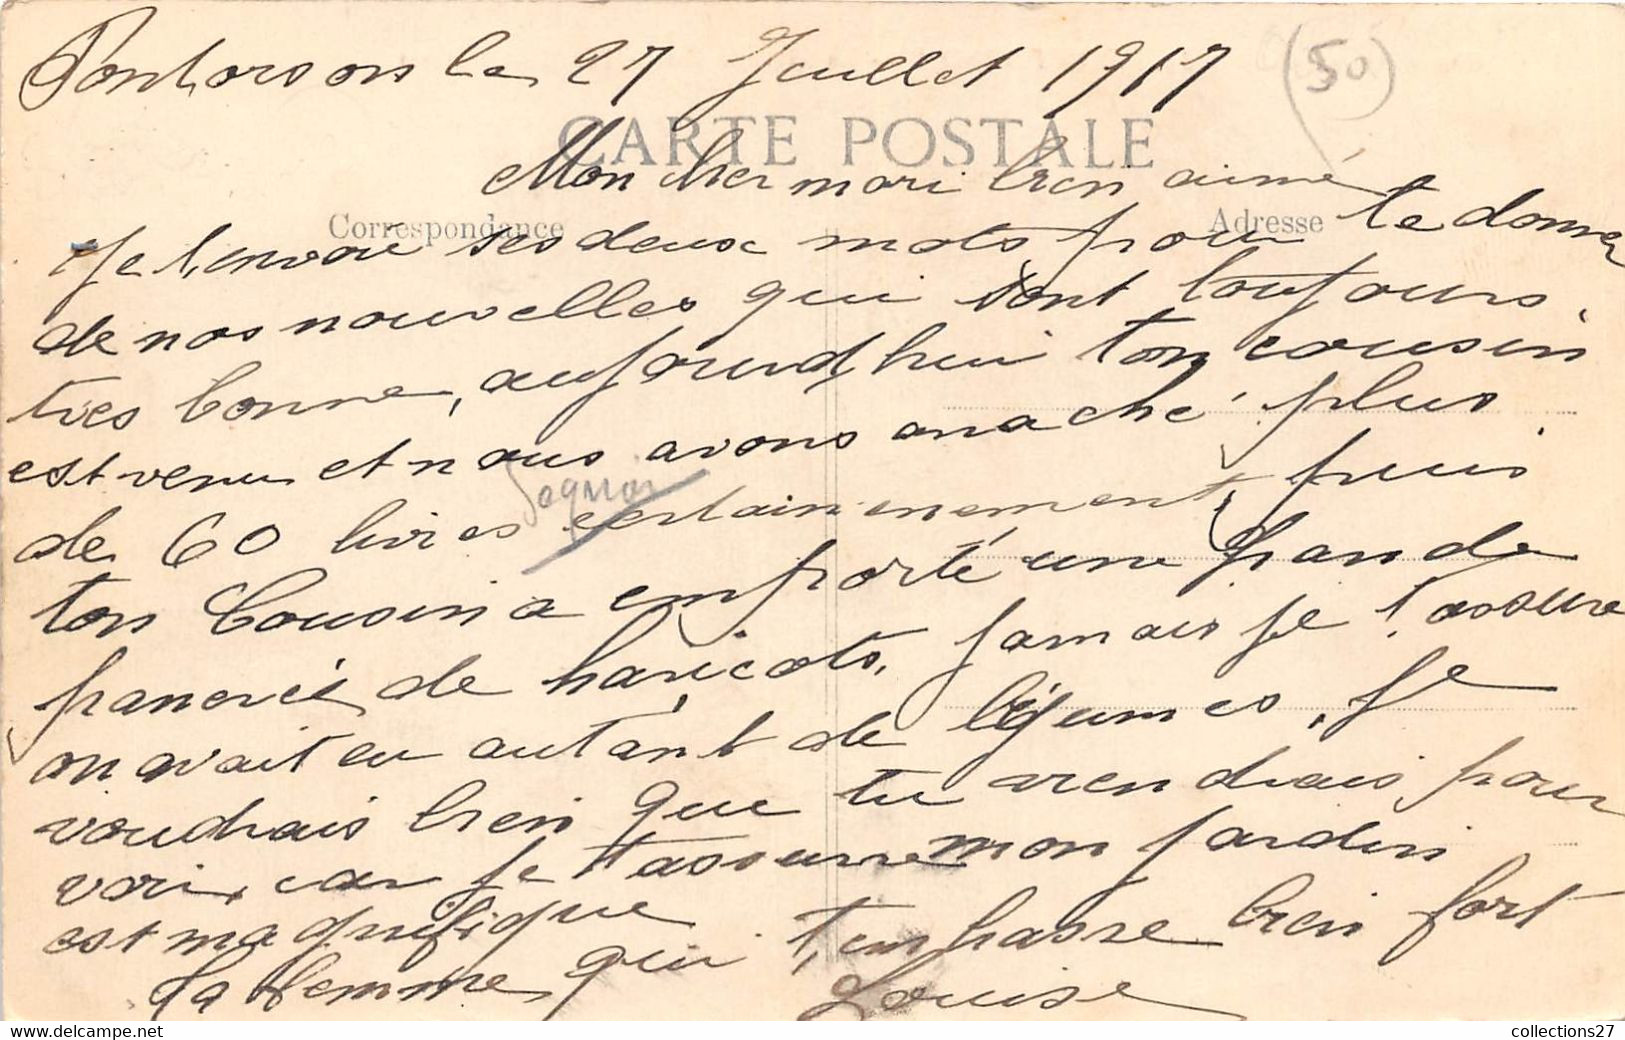 Pontorson le 27 Juillet 1917
(50)
CARTE POSTALE
Mon cher mari bien aimé
Correspondance
Adresse
Je t'envoie ses deux mots pour te donner
de nos nouvelles qui sont toujours
très bonne, aujourd'hui ton cousin
est venu et nous avons arraché plus
de 60 livres certainement, puis
ton Cousin a emporté une grande
panerée de haricots, jamais je t'assure
on avait eu autant de légumes, je
voudrais bien que tu viendrais pour
voir, car je t'assure mon jardin
est magnifique
Ta femme qui t'embrasse bien fort
Louise
collections27